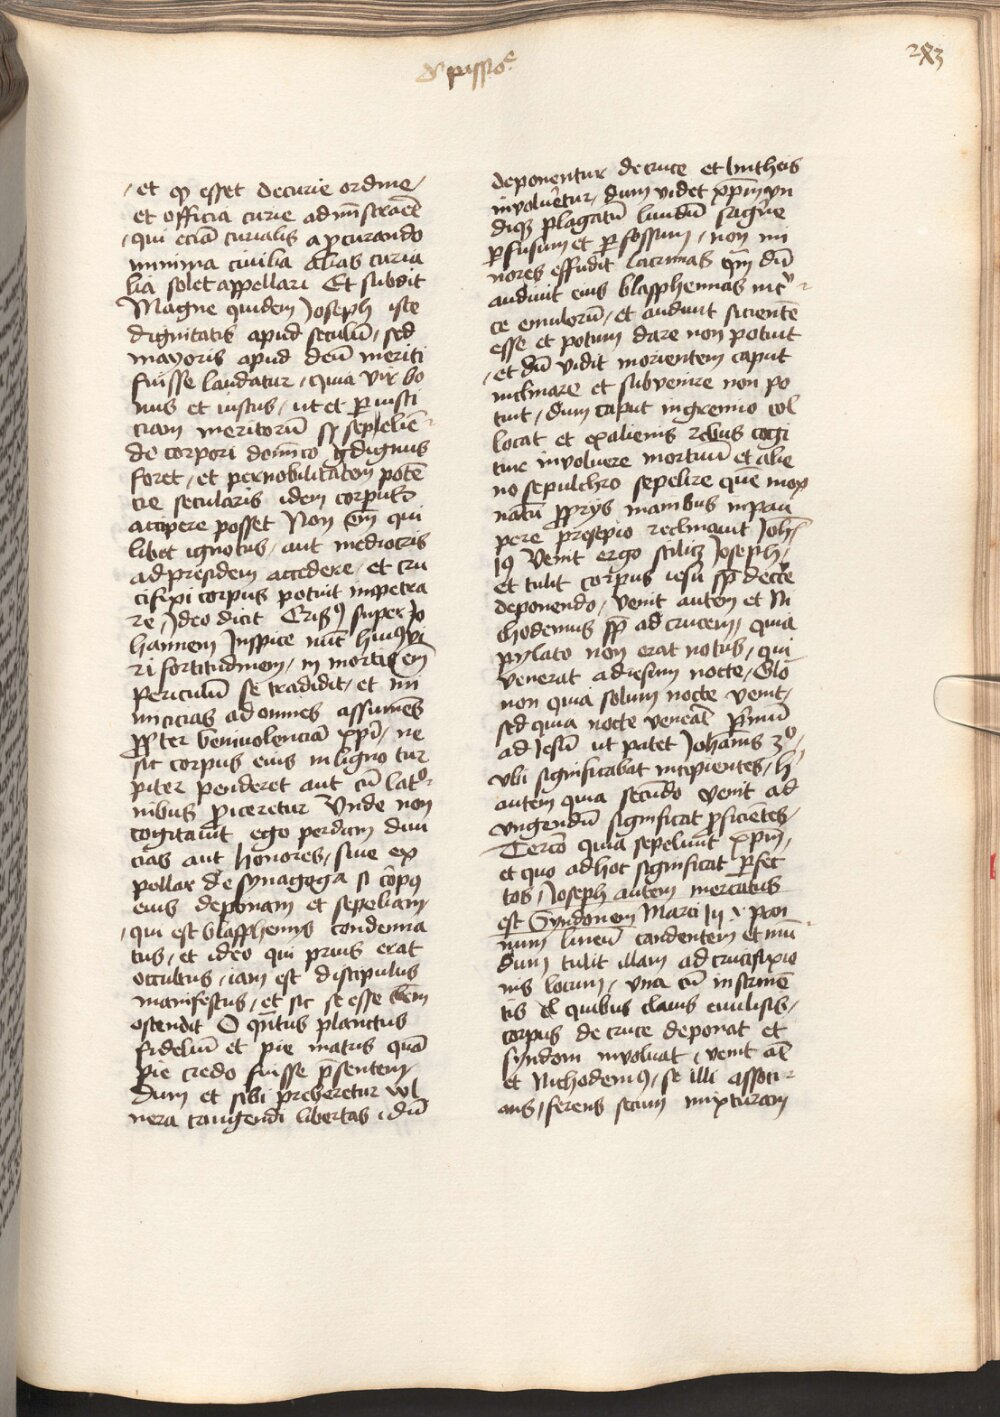 de passioe
283
et qͥ esset decurie ordine
et officia curie admīstraēt
qui eciā curialis a ꝓcurando
minima ciuilia alias curia
lia solet appellari Et subdit
Magne quidem Joseph iste
dignitatis apud seculū, sed
mayoris apud deū meriti
fuisse laudatur, quia vir bo
nus et iustus, ut et ꝑ iusti
ciam meritorū sepeliē
de corpori domīco dignus
foret, et per nobilitatem potē
cie secularis idem corpus
accipere posset Non em̄ qui
libet ignotus, aut mediocris
ad presidem accedere, et cru
cifixi corpus potuit impetra
re, Ideo dicit Cris⁹ super Jo
hannem Inspice nūc hui⁹ vi
ri fortitudinem, in mortis em̄
periculū se tradidit, et ini
micicias ad omnes assumēs
ꝓpter beniuolenciā xp̄i, ne
sic corpus eius in ligno tur
piter penderet aut cū latͦ
nibus ꝓiceretur Unde non
cogitauit ego perdam diui
cias aut honores, siue ex
pellar de synagoga si corpꝯ
eius deponam et sepeliam
qui est blasphemus condemna
tus, et ideo qui prius erat
occultus, iam est discipulus
manifestus, et sic se esse bm̄
ostendit O qn̄tus planctus
fideliū et pie matris quā
pie credo fuisse p̄sentem
dum et sibi preberetur vul
nera tangendi libertas dū
deponeretur de cruce et lintheis
involuēretur, dum videt xpm̄ vn
diqꝫ plagatū liuidū sāgͥne
ꝑfusum et ꝑfossum, non mi
nores effudit lacrimas qm̄ dū
audiuit eius blasphemias
ce emulorū, et audiuit sicientē
esse et potum dare non potuit
et dū vidit morientem caput
inclinare et subvenire non po
tuit, dum caput in gremio col
locat et ex alienis rebus cogi
tur involuere mortuū et alie
no sepulchro sepelire quē mox
natū ꝓprys manibus in pau
pere presepio reclinauit Joh̄
19 Venit ergo scilicꝫ Joseph,
et tulit corpus iesū sp̄ de cͣce
deponendo, venit autem et Ni
chodemus sp̄ ad crucem, quia
pylato non erat notus, qui
venerat ad iesum nocte, Glo
non quia solum nocte venit,
sed quia nocte veneāt pͥmū
ad Jesū ut patet Johānis 3ͦ
vbi significabat incipientes, hͥ
autem quia secūdo venit ad
vngendū significat ꝓficiētes,
Tercō quia sepeliunt xpm̄,
et quo ad hoc significat ꝑfec
tos, Joseph autem mercatus
est Syndonem Marci
num lineū candentem et mū
dum tulit illam ad crucifixio
nis locum, vna cū instrumē
tis de quibus clauis euulsis,
corpus de cruce deponat et
syndoni involuat, venit aūt
et Nichodem⁹, se illi associ
ans, ferens secum mixturam